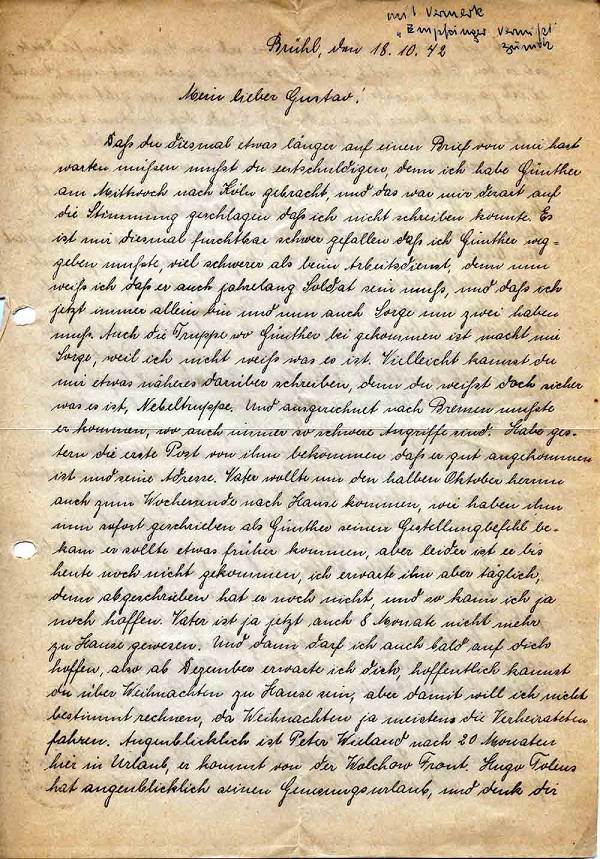 mit Vermerk
"Empfänger vermißt"
zurück
Brühl, den 18.10.42
Mein lieber Gustav!
Daß du diesmal etwas länger auf einen Brief von mir hast
warten müssen mußt du entschuldigen, denn ich habe Günther
am Mittwoch nach Köln gebracht, und das war mir derart auf
die Stimmung geschlagen daß ich nicht schreiben konnte. Es
ist mir diesmal furchtbar schwer gefallen daß ich Günther weg=
geben mußte, viel schwerer als beim Arbeitsdienst, denn nun
weiß ich daß er auch jahrelang Soldat sein muß, und daß ich
jetzt immer allein bin und nun auch Sorge um zwei haben
muß. Auch die Truppe wo Günther bei gekommen ist macht mir
Sorge, weil ich nicht weiß was es ist. Vielleicht kannst du
mir etwas näheres darüber schreiben, denn du weißt doch sicher
was es ist, Nebeltruppe. Und ausgerechnet nach Bremen mußte
er kommen, wo auch immer so schwere Angriffe sind. Habe ges=
tern die erste Post von ihm bekommen daß er gut angekommen
ist und seine Adresse. Vater wollte um den halben Oktober herum
auch zum Wochenende nach Hause kommen, wir haben ihm
nun sofort geschrieben als Günther seinen Gestellungbefehl be=
kam er sollte etwas früher kommen, aber leider ist er bis
heute noch nicht gekommen, ich erwarte ihn aber täglich,
denn abgeschrieben hat er noch nicht, und so kann ich ja
noch hoffen. Vater ist ja jetzt auch 8 Monate nicht mehr
zu Hause gewesen. Und dann darf ich auch bald auf dich
hoffen, also ab Dezember erwarte ich dich, hoffentlich kannst
du über Weihnachten zu Hause sein, aber damit will ich nicht
bestimmt rechnen, da Weihnachten ja meistens die Verheirateten
fahren. Augenblicklich ist Peter Wieland nach 20 Monaten
hier in Urlaub, er kommt von der Wolchow Front. Hugo
hat augenblicklich seinen Genesungsurlaub, und denk dir